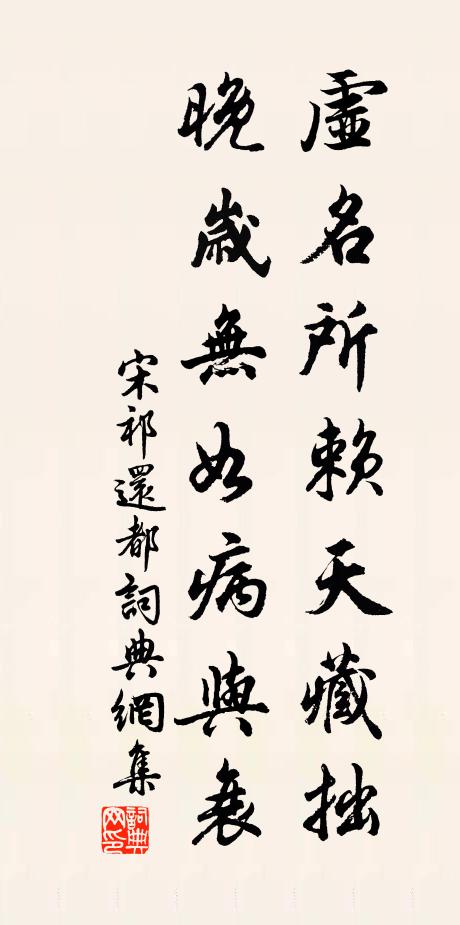 虛名所賴天藏拙
晚歲無如病與衰
宋祁還都詞典網集
詞典網印